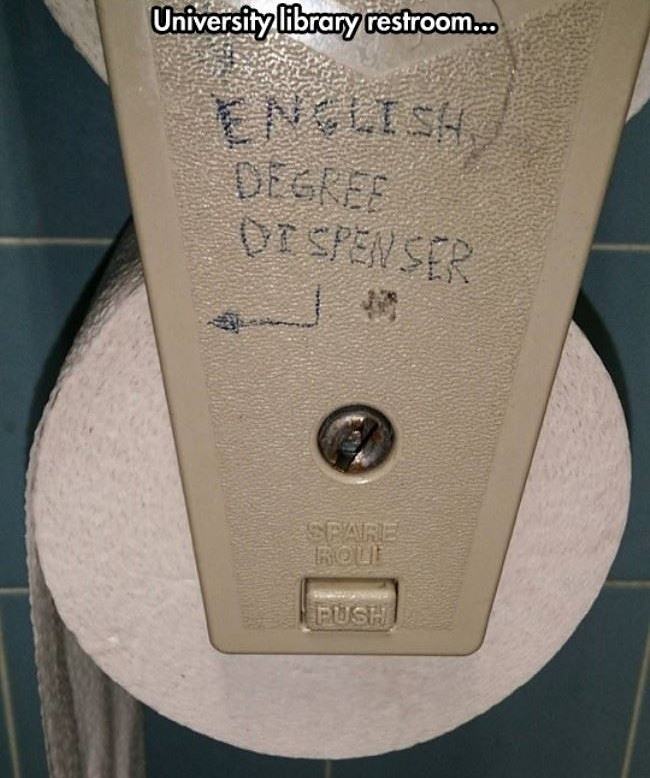 University library restroom...
ENGLISH
DEGREE
DISPENSER
SPARE
ROLL
PUSH